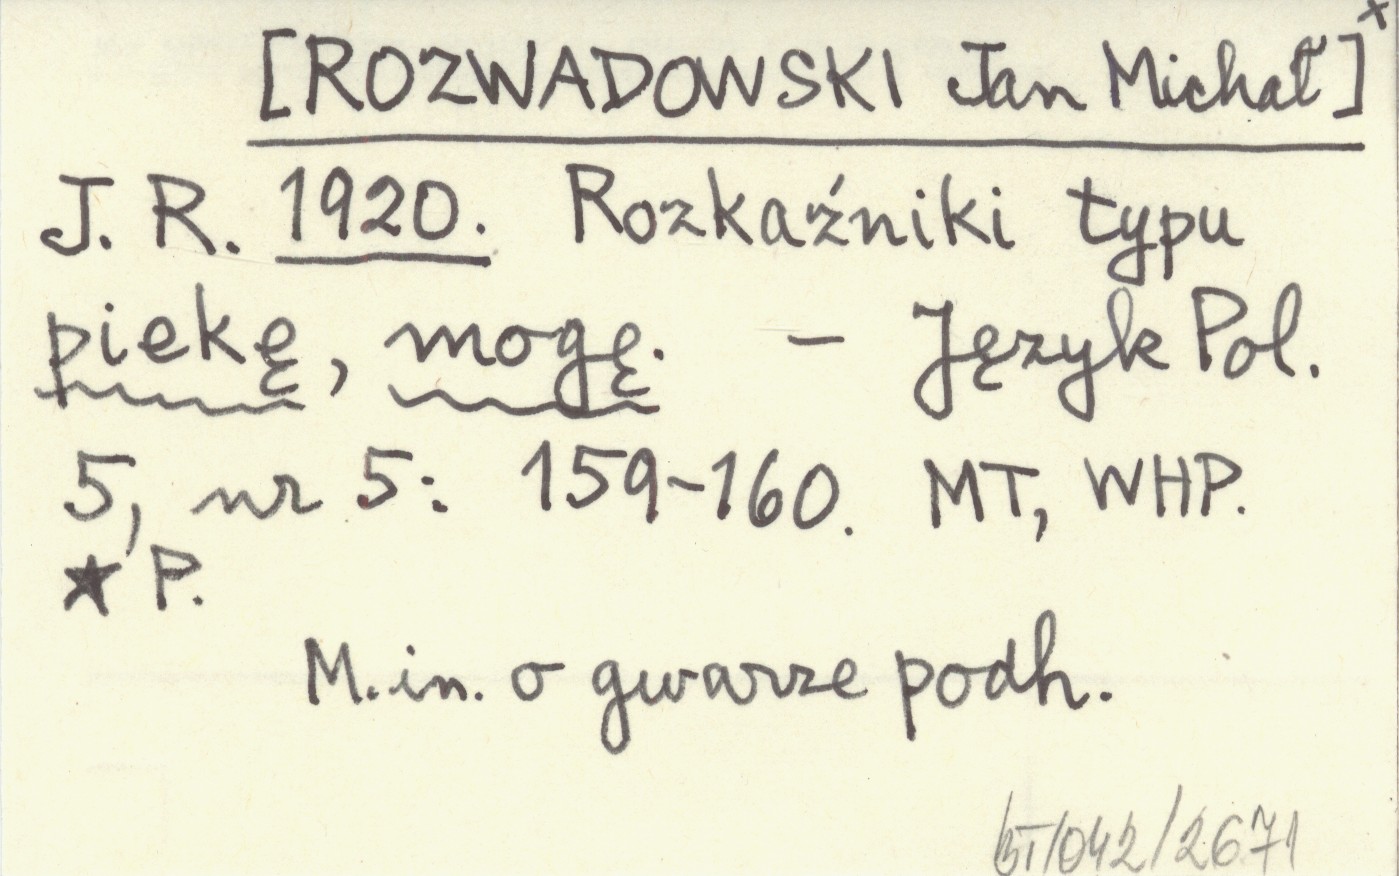 [ROZWADOWSKI Jan Michał]x
J. R. 1920. Rozkaźniki typu
piekę, mogę. – Język Pol.
5, nr 5: 159-160. MT, WHP.
★ P.
M.in. o gwarze podh.
BT/042/2671